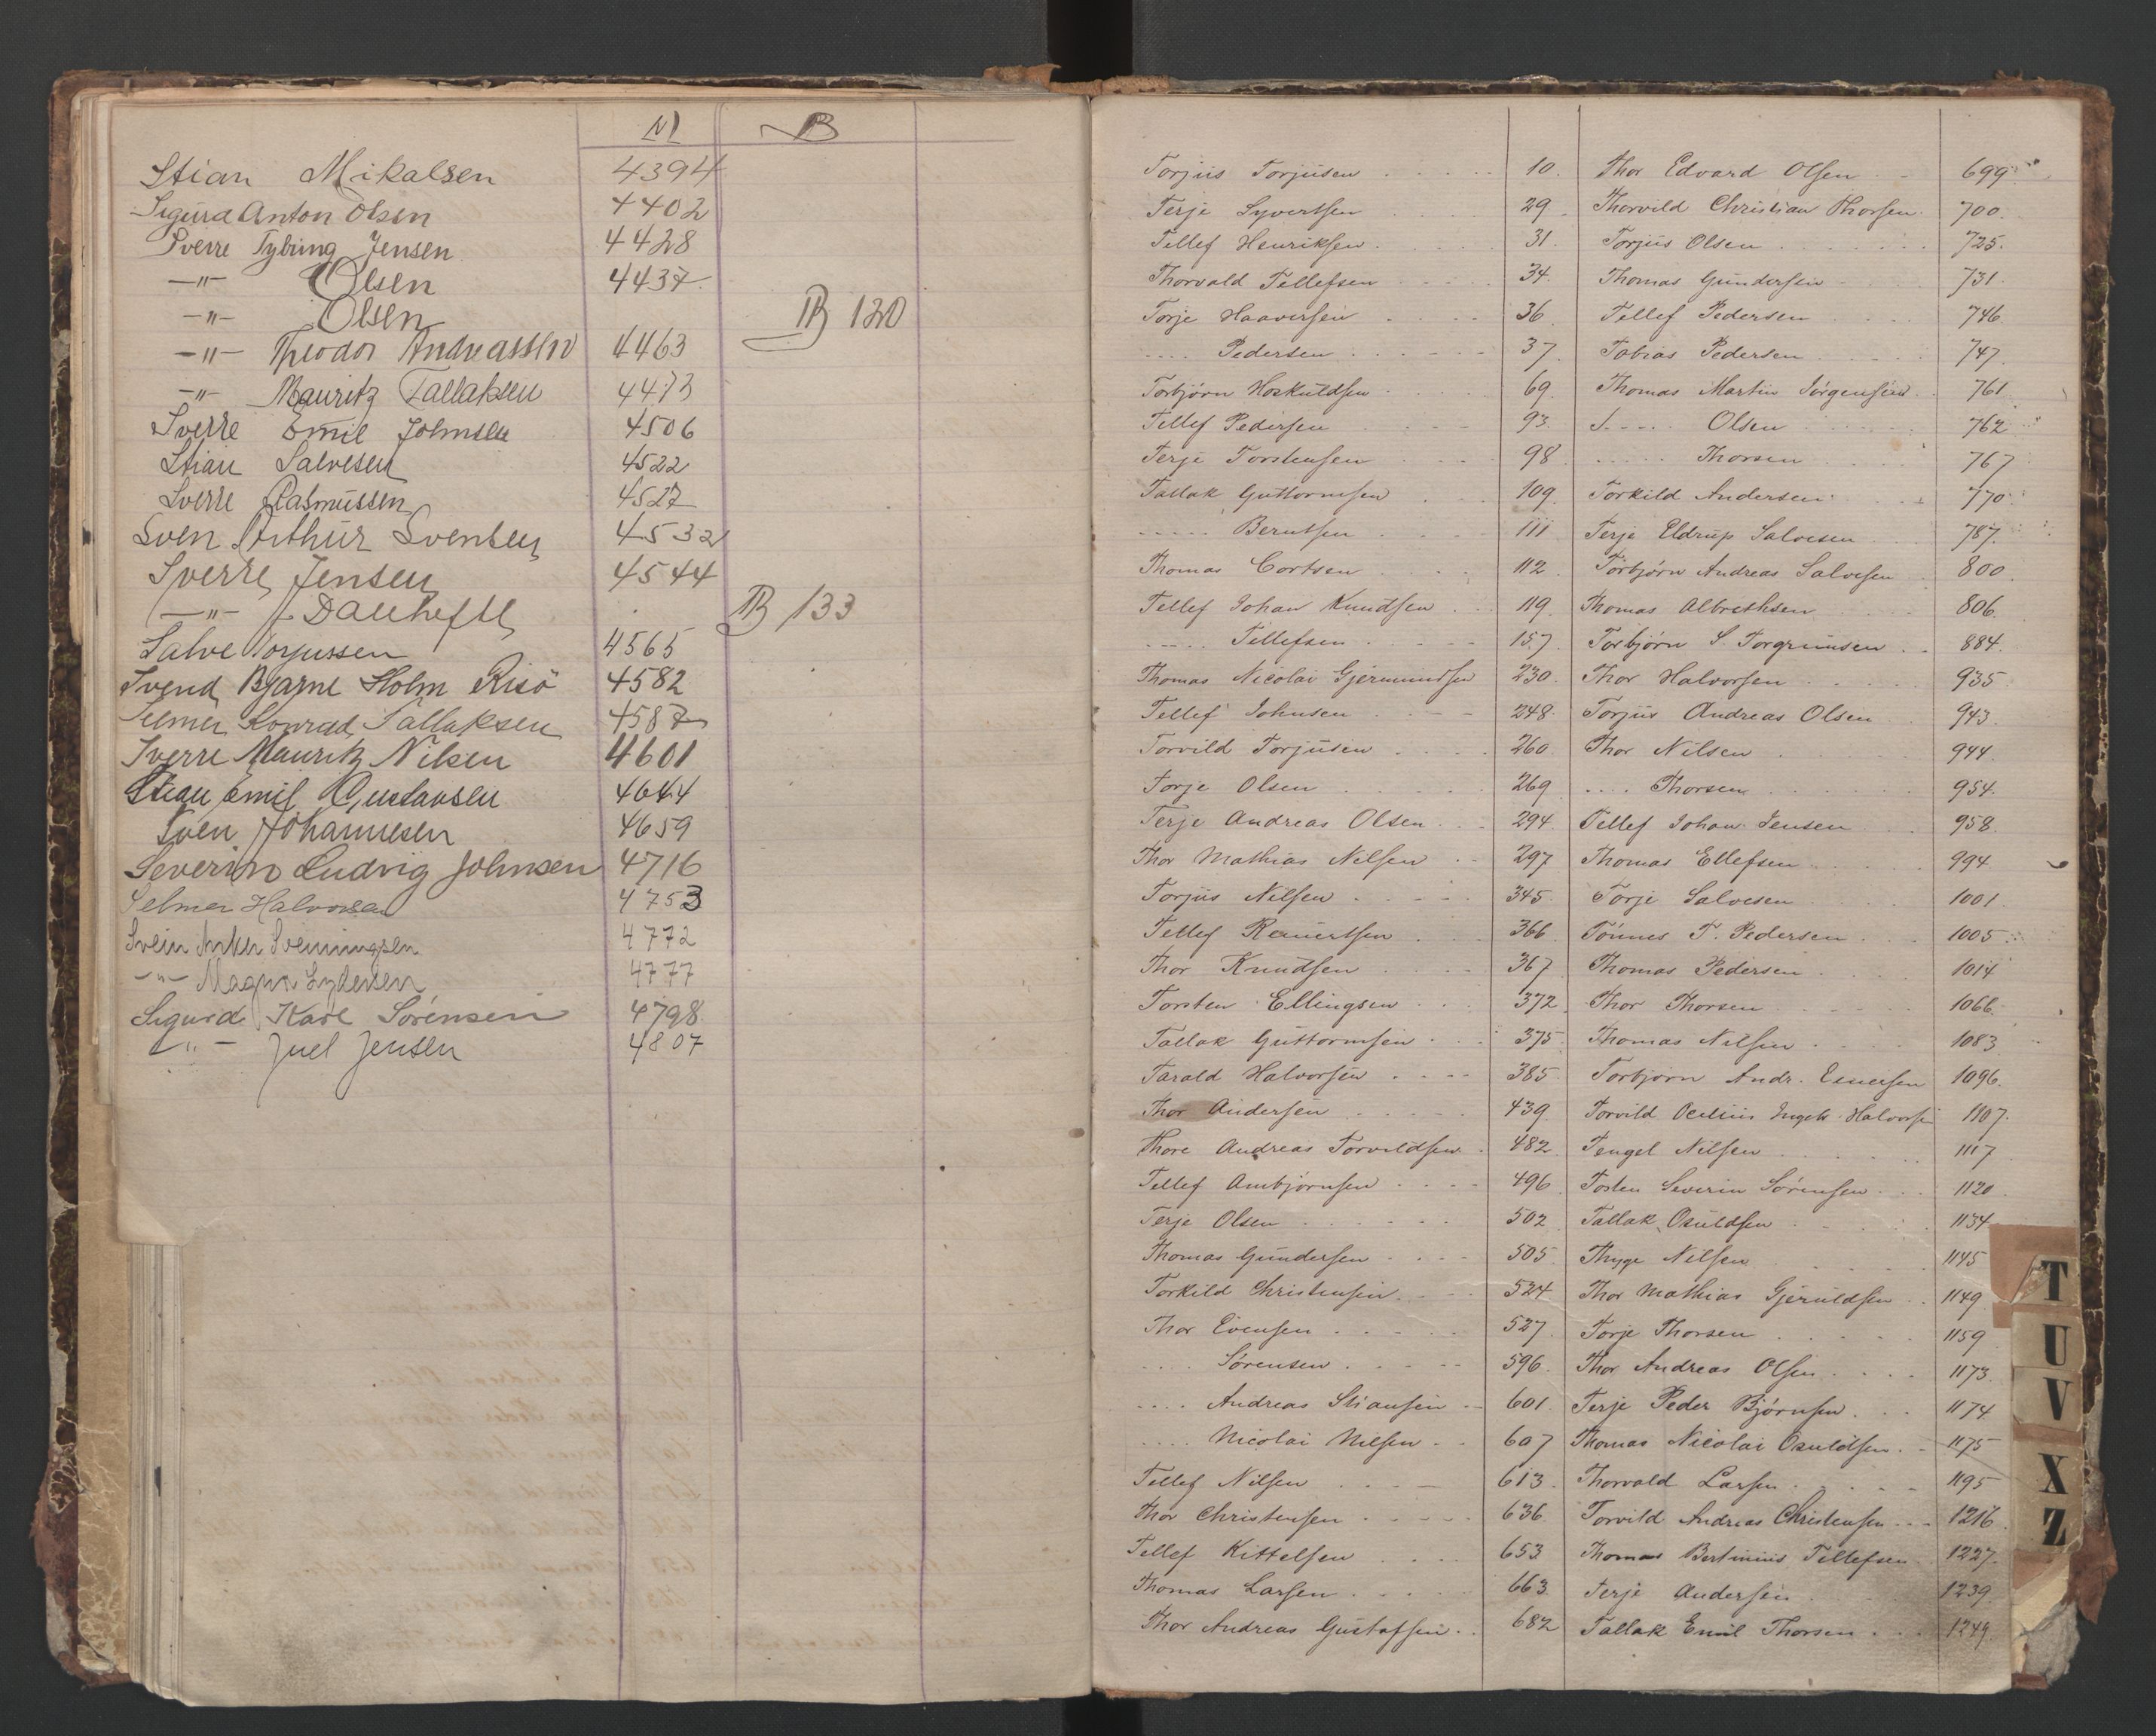 N B
Stian Mikalsen 4394
Sigurd Anton Olsen 4402
Sverre Tybring Jensen 4428
—"— Olsen 4437
—"— Olsen B 120
—"— Theodor Andreassen 4463
—"— Mauritz Tallaksen 4473
Sverre Emil Johnsen 4506
Stian Salvesen 4522
Sverre Rasmussen 4527
Sven Arthur Svensen 4532
Sverre Jensen 4544
—"— B 133
Salve Torjussen 4565
Svend Bjarne Holm Risö 4582
Selmer Konrad Tallaksen 4587
Sverre Mauritz Nilsen 4601
Stian Emil Gustavsen 4644
Sven Johannesen 4659
Severin Ludvig Johnsen 4716
Selmer Halvorsen 4753
Svein Anker Svenningsen 4772
—"— Magnus 4777
Sigurd Kare Sörensen 4798
—"— Juel Jensen 4807
Torjus Torjusen 10. Thor Edvard Olsen 699
Terje Syvertsen 29. Thorvild Christian Thorsen 700.
Tellef Henriksen 31. Torjus Olsen 725.
Thorvald Tellefsen 34. Thomas Gundersen 731.
Torje Haaversen 36. Tellef Pedersen 746.
.... Pedersen 37. Tobias Pedersen 747.
Torbjørn Hoskuldsen 69. Thomas Martin Jörgensen 761
Tellef Pedersen 93. .... Olsen 762
Terje Torstensen 98. .... Thorsen 767
Tallak Guttormsen 109. Torkild Andersen 770
.... Berntsen 111 Terje Eldrup Salvesen 787.
Thomas Cortsen 112. Torbjørn Andreas Salvesen 800.
Tellef Johan Knudsen 119. Thomas Albrethsen 806.
.... Tellefsen 157. Torbjørn S. Torgrimsen 884.
Thomas Nicolai Gjermundsen 230. Thor Halvorsen 935.
Tellef Johnsen 248. Torjus Andreas Olsen 943.
Torvild Torjusen 260. Thor Nilsen 944.
Torje Olsen 269 .... Thorsen 954.
Terje Andreas Olsen 294. Tellef Johan Jensen 958.
Thor Mathias Nilsen 297 Thomas Ellefsen 994.
Torjus Nilsen 345. Torje Salvesen 1001.
Tellef Reiertsen 366 Tönnes T. Pedersen 1005.
Thor Knudsen 367 Thomas Pedersen 1014
Torsten Ellingsen 372 Thor Thorsen 1066.
Tallak Guttormsen 375. Thomas Nilsen 1083
Tarald Halvorsen 385. Torbjørn Andr. Einersen 1096.
Thor Andersen 439. Torvild Halvorsen 1107.
Thore Andreas Torvildsen 482. Tengel Nilsen 1117
Tellef Ambjørnsen 496. Tosten Severin Sörensen 1120.
Terje Olsen 502. Tallak Osuldsen 1134
Thomas Gundersen 505. Thyge Nilsen 1145
Torkild Christensen 524 Thor Mathias Gjeruldsen 1149.
Thor Evensen 527. Torje Thorsen 1159
.... Sörensen 596. Thor Andreas Olsen 1173.
.... Andreas Stiansen 601. Terje Peder Bjørnsen 1174.
.... Nicolai Nilsen 607 Thomas Nicolai Osuldsen 1175
Tellef Nilsen 613. Thorvald Larsen 1195
Thor Christensen 636. Torvild Andreas Christensen 1216
Tellef Kittelsen 653 Thomas Bertinius Tellefsen 1227.
Thomas Larsen 663. Terje Andersen 1239
Thor Andreas Gustafsen 682 Tallak Emil Thorsen 1249.
T
U
V
X
Z